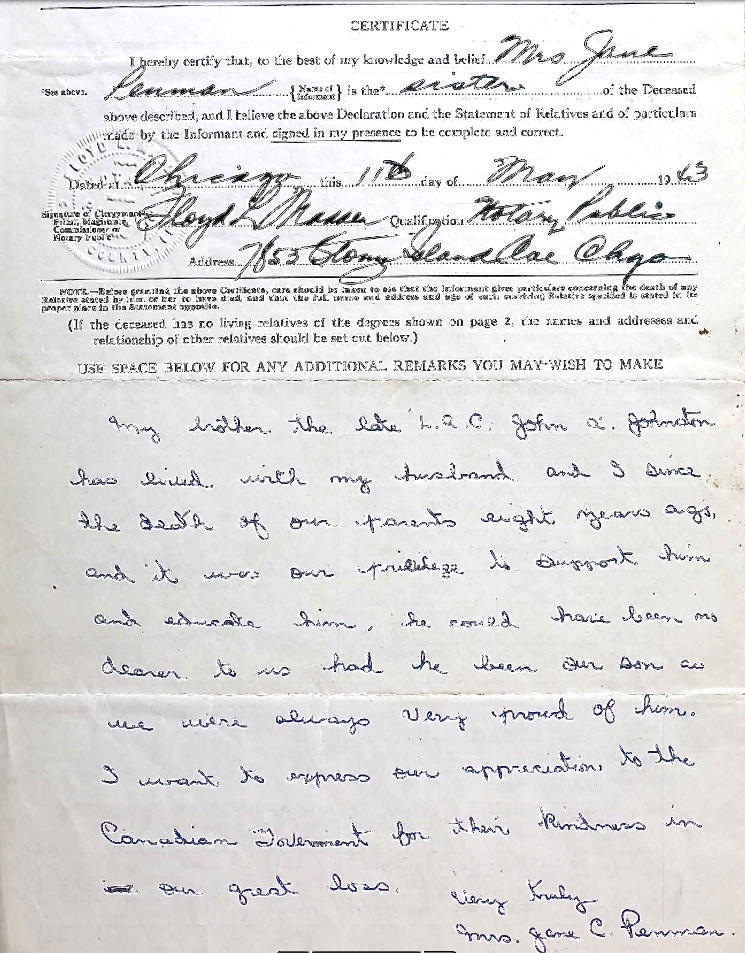 CERTIFICATE
I hereby certify that, to the best of my knowledge and belief Mrs Jane
*See above. Penman {Name of Informant} is the* sister of the Deceased
above described, and I believe the above Declaration and the Statement of Relatives and of particulars
made by the Informant and signed in my presence to be complete and correct.
Dated at Chicago this 11th day of May 1943
Signature of Clergyman, Priest, Magistrate, Commissioner or Notary Public Floyd L Qualification Notary Public
Address 7853 Stony Island Ave Chgo
NOTE.—Before granting the above Certificate, care should be taken to see that the Informant gives particulars concerning the death of any
Relative stated by him or her to have died, and that the full name and address and age of each surviving Relative specified is stated in its
proper place in the Statement opposite.
(If the deceased has no living relatives of the degrees shown on page 2, the names and addresses and
relationship of other relatives should be set out below.)
USE SPACE BELOW FOR ANY ADDITIONAL REMARKS YOU MAY WISH TO MAKE
My brother the late L.A.C. John A. Johnston
has lived with my husband and I since
the death of our parents eight years ago,
and it was our privilege to support him
and educate him, he could have been no
dearer to us had he been our son as
we were always very proud of him.
I want to express our appreciation to the
Canadian Goverment for their kindness in
our great loss. Very truly
Mrs. Jane C. Penman.